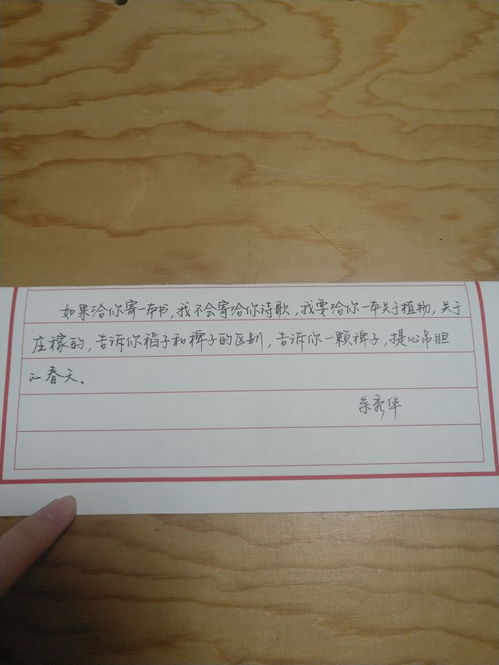 如果给你寄一本书，我不会寄给你诗歌，我要给你一本关于植物，关于
庄稼的，告诉你稻子和稗子的区别，告诉你一颗稗子，提心吊胆
的春天。
余秀华